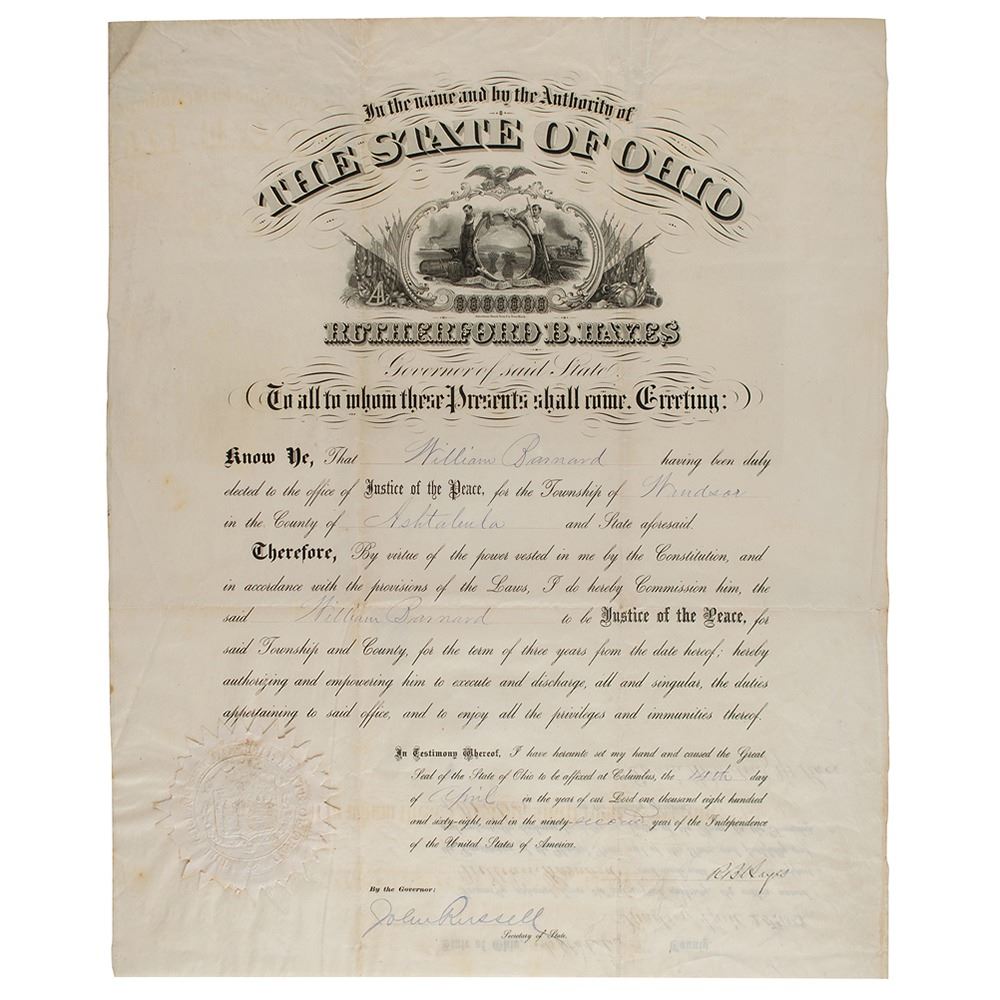 In the name and by the Authority of
THE STATE OF OHIO
RUTHERFORD B. HAYES
Governor of said State.
To all to whom these Presents shall come, Greeting:
Know Ye, That William Barnard having been duly
elected to the office of Justice of the Peace, for the Township of Windsor
in the County of Ashtabula and State aforesaid.
Therefore, By virtue of the power vested in me by the Constitution, and
in accordance with the provisions of the Laws, I do hereby Commission him, the
said William Barnard to be Justice of the Peace, for
said Township and County, for the term of three years from the date hereof; hereby
authorizing and empowering him to execute and discharge, all and singular, the duties
appertaining to said office, and to enjoy all the privileges and immunities thereof.
In Testimony Whereof, I have hereunto set my hand and caused the Great
Seal of the State of Ohio to be affixed at Columbus, the day
of April in the year of our Lord one thousand eight hundred
and sixty-eight, and in the ninety-second year of the Independence
of the United States of America.
R B Hayes
By the Governor:
John Russell
Secretary of State.